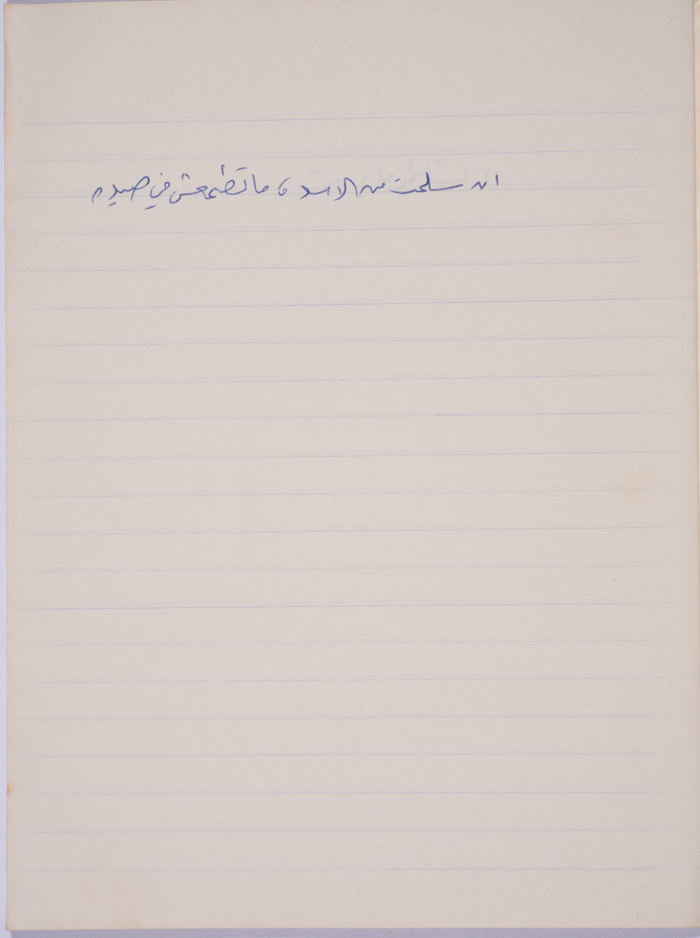 ان سلمت من الاسد، ما تطمعش في صيده